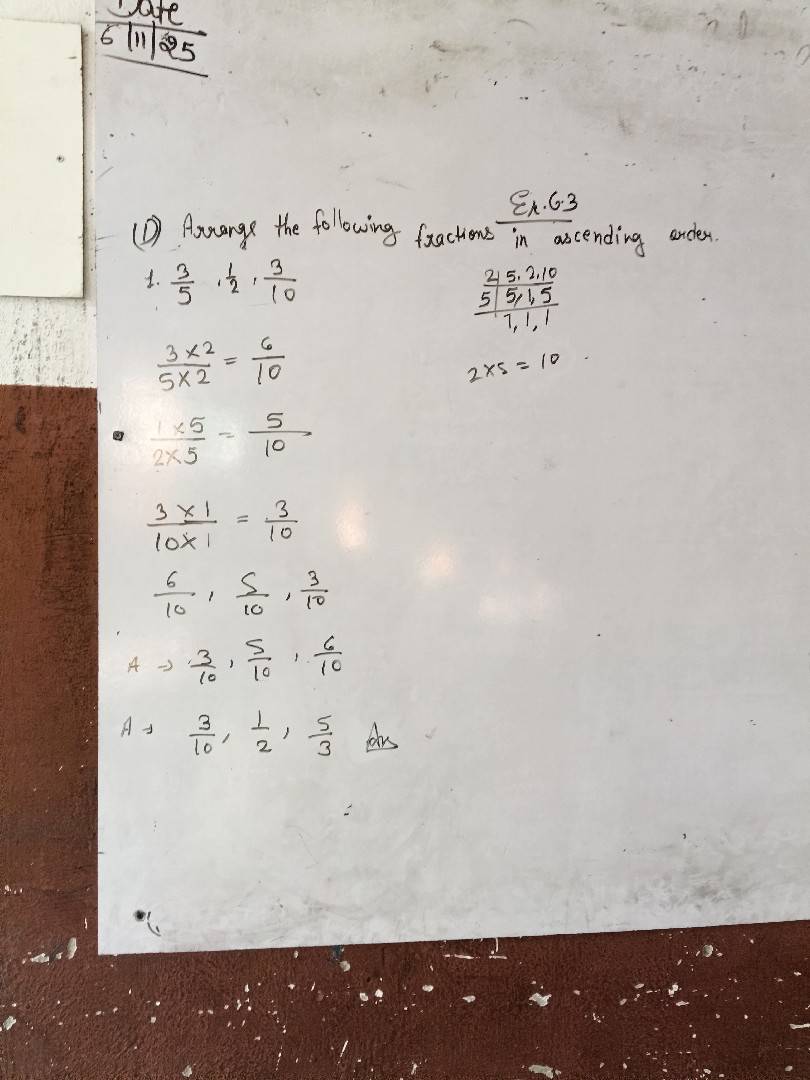 Date
6/11/25
Ex. 6.3
(1) Arrange the following fractions in ascending order.
1. 3/5, 1/2, 3/10
2 | 5, 2, 10
5 | 5, 1, 5
1, 1, 1
2×5 = 10
3×2/5×2 = 6/10
1×5/2×5 = 5/10
3×1/10×1 = 3/10
6/10, 5/10, 3/10
A → 3/10, 5/10, 6/10
A → 3/10, 1/2, 5/3 Ans